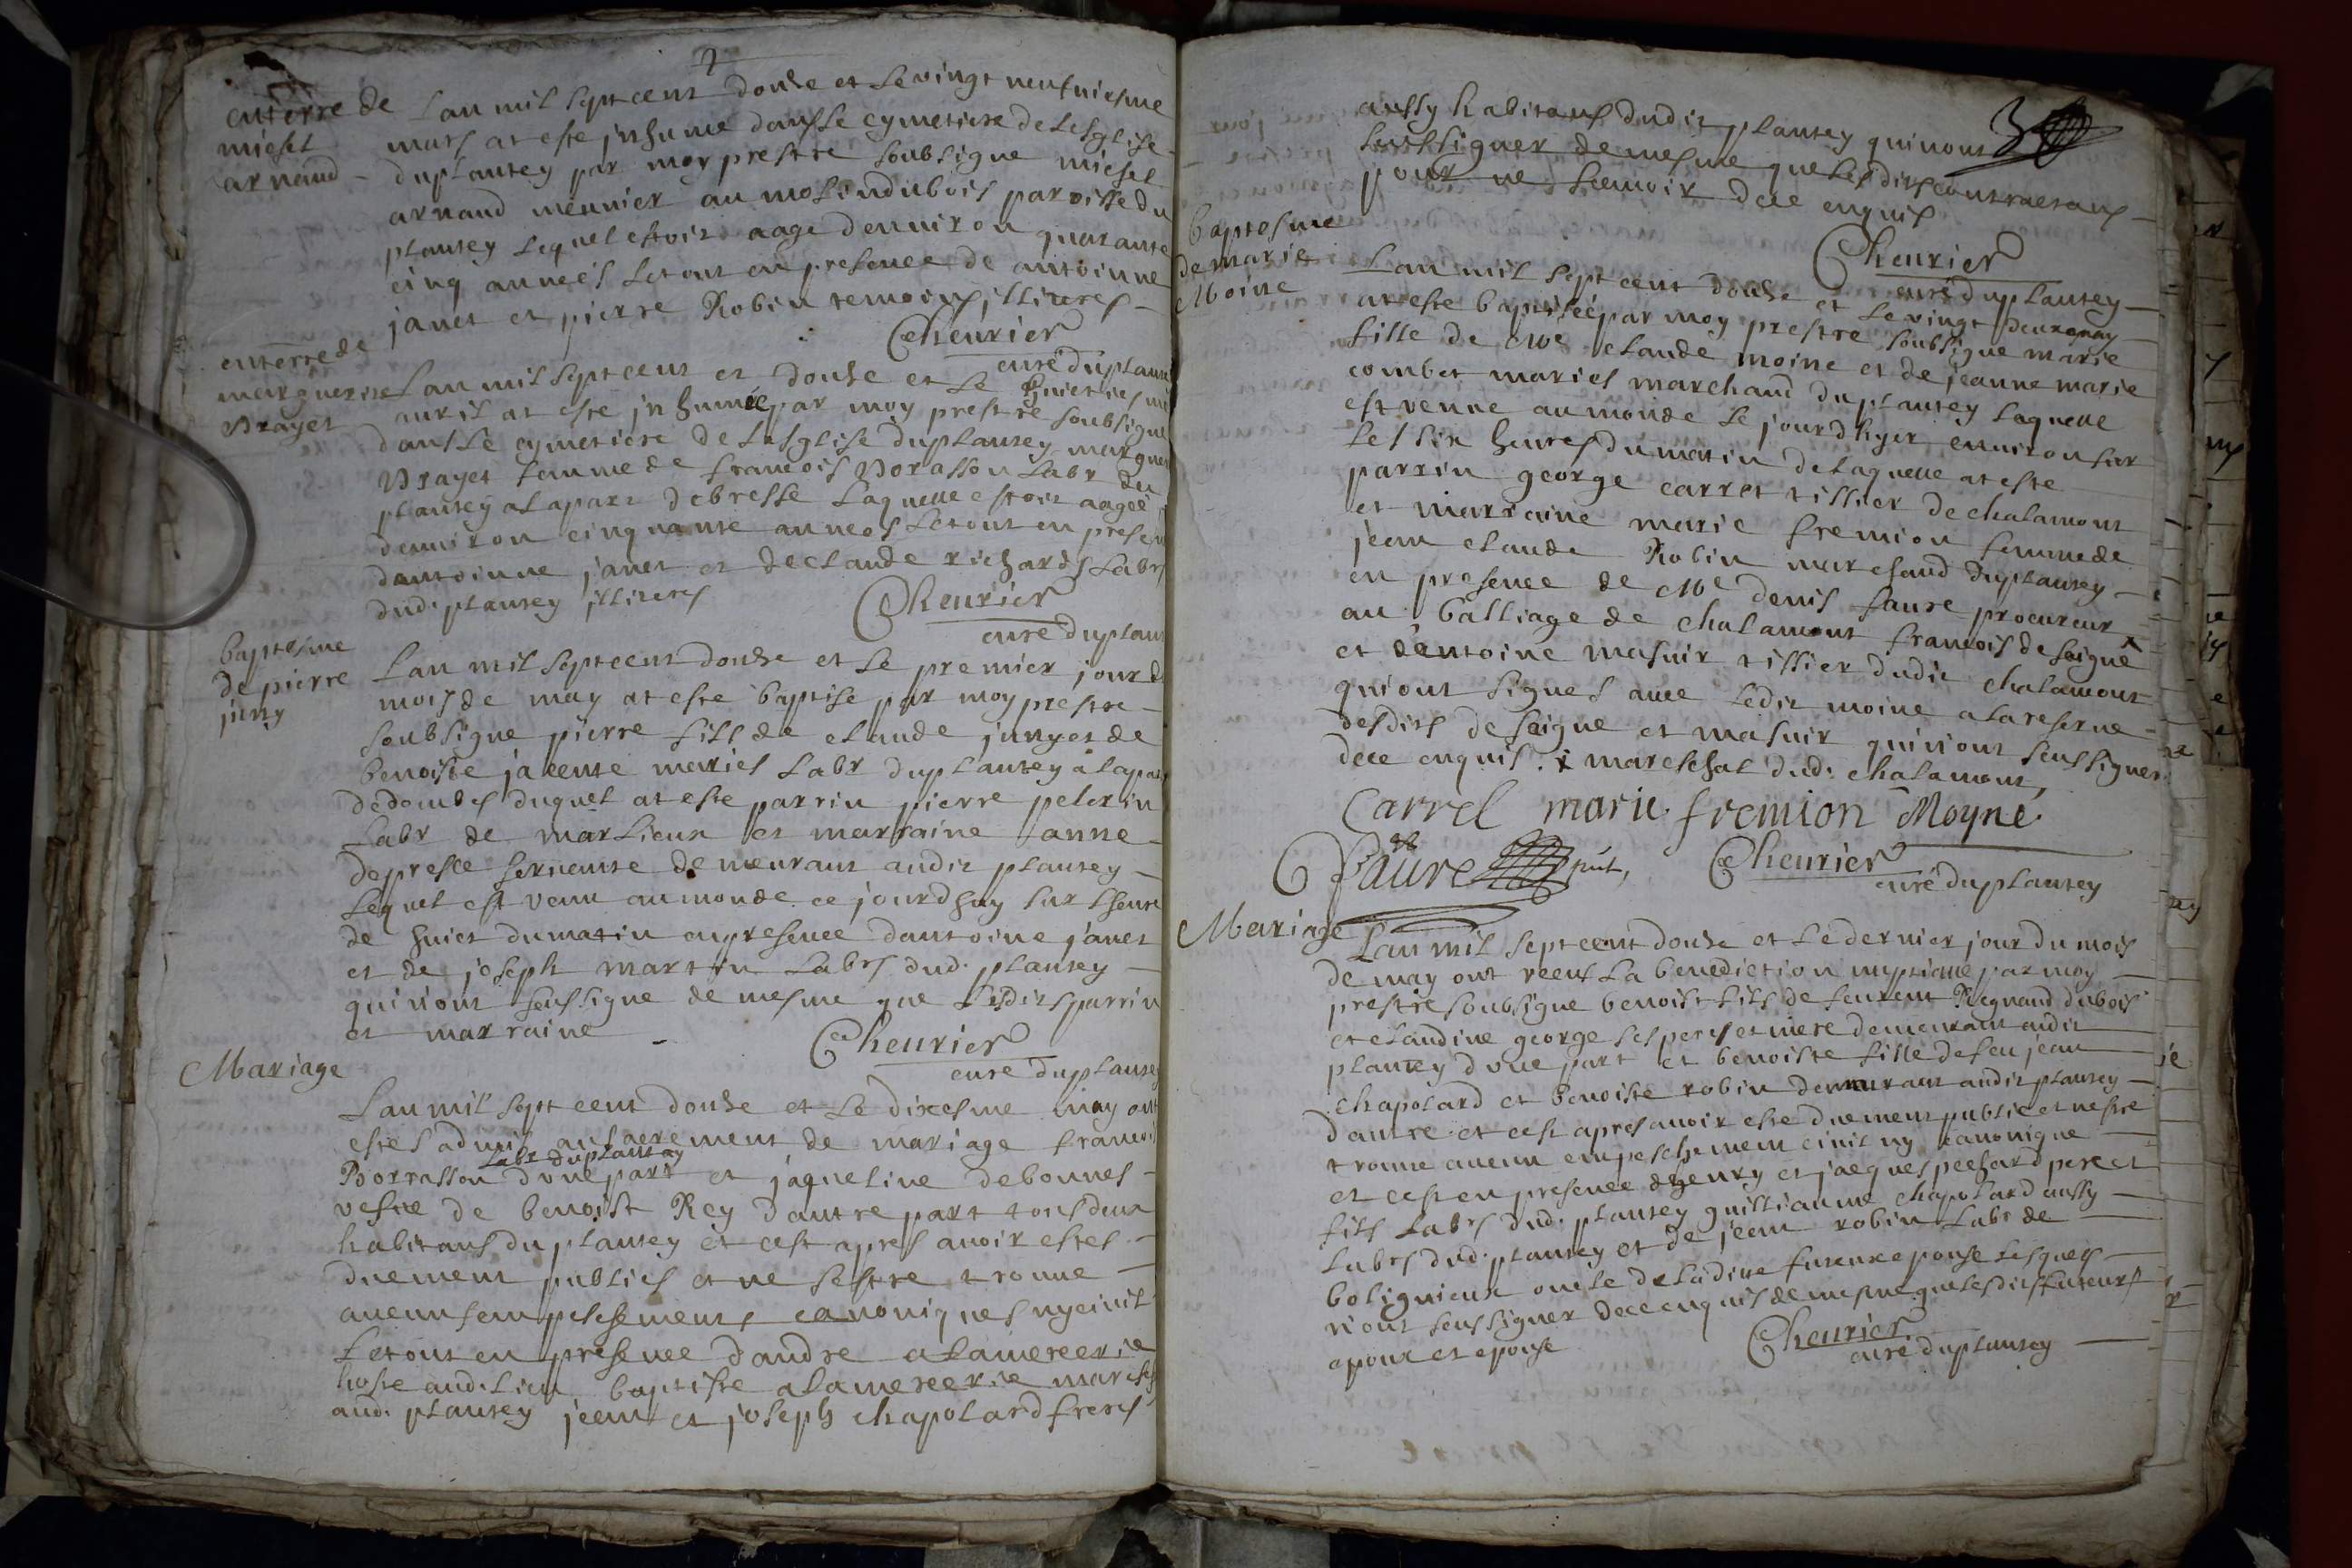 2
enterre de
miesel
arnaud -
Lan mil sept cent douse et le vingt neufuiesme
mars at este jnhumé dans le cymetiere de lesglise
du plantey par moy prestre soubsigne miesel
arnaud meunier au molin du bois paroisse du
plantey lequel estoit aage denuiron quarante
cinq années le tout en presence de antoinne
janet et pierre Robin temoins illiteres -
Cheurier
curé du plant
enterre de
marguerite
Vrayet
Lan mil sept cent et douse et le huictiesme
auril at este jnhumée par moy prestre soubsigne
dans le cymetiere de lesglise du plantey marguer
Vrayet femme de francois Borasson labr du
plantey a la part de bresse laquelle estoit aageé
denuiron cinquante annes le tout en presen
dantoinne janet et de claude richard labrs
dud. plantey illiteres
Cheurier
curé du plant
baptesme
de pierre
juny
Lan mil sept cent douse et le premier jour d
mois de may at este baptise par moy prestre -
soubsigne pierre fils de claude juny et de
benoiste jacente mariés labr du plantey à la part
de dombes duquel at este parrin pierre pelerin
labr de marlieux et marraine anne
depresle seruente demeurant audit plantey -
lequel est venu au monde ce jourdhuy sur lheure
de huict du matin en presence dantoine janet
et de joseph martin labrs dud. plantey -
qui n'ont sceu signe de mesme que lesdits parrin
et marraine -
Cheurier
curé du plantey
Mariage
Lan mil sept cent douse et le dixesme may ont
estes admis au sacrement de mariage francois
labr du plantay
Borrasson dune part et jaqueline debonnes -
vefue de benoist Rey dautre part tous deux
habitans du plantey et cest apres auoir estes -
duement publies et ne sestre trouue -
aucuns empeschements canoniques ny ciuil
le tout en presence dandre alamercerie
hoste aud. lieu baptiste alamercerie maresch
aud. plantey jean et joseph chapolard freres
3
aussy habitans dudit plantey qui nont
sceu signer de mesme que lesdits contractans -
pour ne scauoir de ce enquis
Cheurier
curé du plantey -
baptesme
de marie
Moine
Lan mil sept cent douse et le vingt deux may -
at este baptiséé par moy prestre soubsigne marie
fille de Me claude moine et de jeanne marie
combet mariés marchand du plantey laquelle
est venue au monde le jourdhyer enuiron sur
les six heures du matin de laquelle at este
parrin george carret tissier de chalamont
et marraine marie fremion femme de
jean claude Robin marchand du plantey -
en presence de Me denis faure procureur
au balliage de chalamont francois de saigne x
et dantoine masuir tissier dudit chalamont
qui ont signes auec ledit moine a la reserue -
desdits de saigne et masuir qui n'ont sceu signer
de ce enquis. x mareschal dud. chalamont,
Carrel marie fremion Moyne
Faure pnt,
Cheurier
curé du plantey
Mariage
Lan mil sept cent douse et le dernier jour du mois
de may ont receus la benediction nuptialle par moy -
prestre soubsigne benoist fils de feu Regnaud dubois
et claudine george ses pere et mere demeurant audit
plantey dune part et benoiste fille de feu jean -
chapolard et benoiste robin demeurant audit plantey -
dautre et cest apres auoir este duement publié et nestre
trouue aucun empeschement ciuil ny canonique -
et cest en presence dhenry et jacques pechard pere et
fils labrs dud. plantey guilliaume chapolard aussy -
labrs dud. plantey et de jean robin labr de -
boligneux oncle de ladite future epouse lesquels -
n'ont sceu signer de ce enquis de mesme que lesdits futeurs
epoux et epouse
Cheurier
curé du plantey -